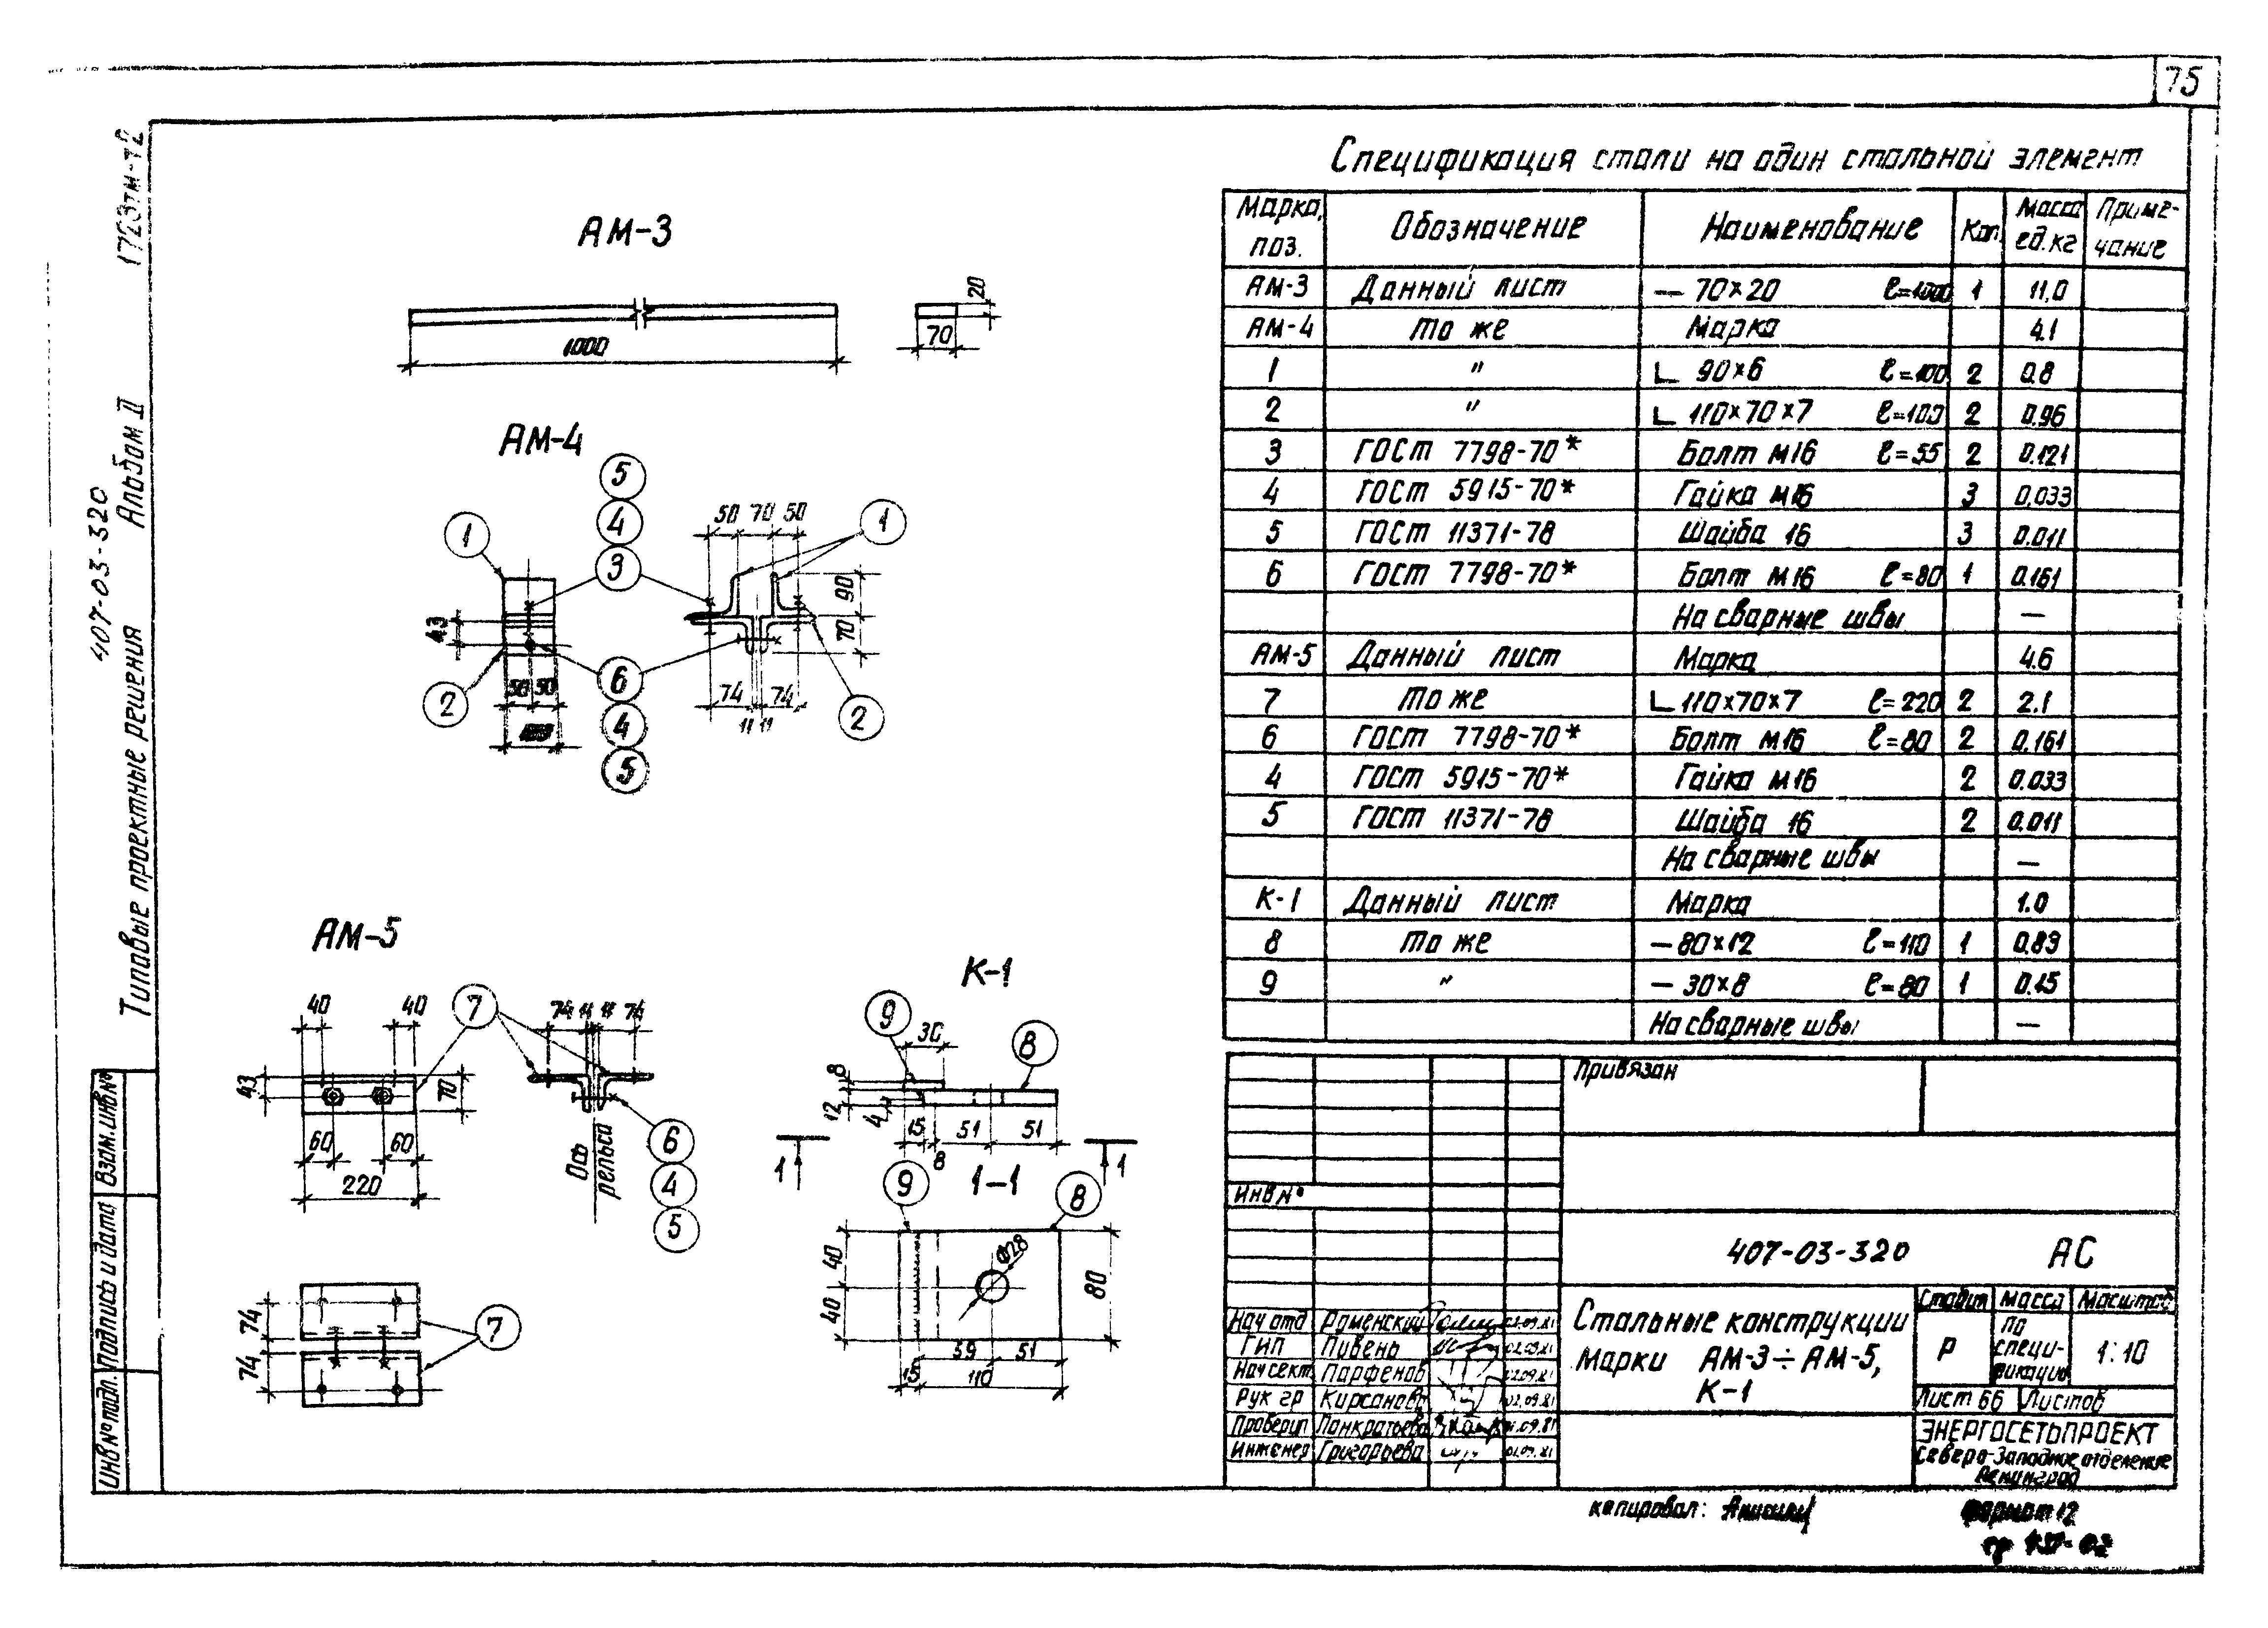 75
1723тм-т2
407-03-320
Типовые проектные решения Альбом II
Взам.инв.№
Подпись и дата
Инв№подл.
АМ-3
1000
70
20
АМ-4
5
4
3
1
2
6
4
5
43
50 50
50 70 50
1
90
70
74 74
11 11
2
АМ-5
40 40
7
43
70
60 60
220
74 11 11 74
Ось рельса
6
4
5
74
74
7
К-1
9
30
8
8
12
4
15 51 51
8
1 1
1-1
9
8
40
40
ф28
80
59 51
15 110
Спецификация стали на один стальной элемент
Марка, поз. Обозначение Наименование Кол. Масса ед.кг Приме-чание
АМ-3 Данный лист — 70×20 ℓ=1000 1 11.0
АМ-4 То же Марка 4.1
1 " L 90×6 ℓ=100 2 0.8
2 " L 110×70×7 ℓ=100 2 0.96
3 ГОСТ 7798-70* Болт М16 ℓ=55 2 0.121
4 ГОСТ 5915-70* Гайка М16 3 0.033
5 ГОСТ 11371-78 Шайба 16 3 0.011
6 ГОСТ 7798-70* Болт М16 ℓ=80 1 0.161
На сварные швы —
АМ-5 Данный лист Марка 4.6
7 То же L 110×70×7 ℓ=220 2 2.1
6 ГОСТ 7798-70* Болт М16 ℓ=80 2 0.161
4 ГОСТ 5915-70* Гайка М16 2 0.033
5 ГОСТ 11371-78 Шайба 16 2 0.011
На сварные швы —
К-1 Данный лист Марка 1.0
8 То же — 80×12 ℓ=110 1 0.83
9 " — 30×8 ℓ=80 1 0.15
На сварные швы —
Привязан
Инв.№
407-03-320 АС
Нач отд Роменский 02.09.81
ГИП Пивень 02.09.81
Нач сект. Парфенов 02.09.81
Рук гр Кирсанова 02.09.81
Проверил Панкратьева 01.09.81
Инженер Григорьева 01.09.81
Стальные конструкции
Марки АМ-3÷АМ-5,
К-1
Стадия Масса Масштаб
Р По специ-фикации 1:10
Лист 66 Листов
ЭНЕРГОСЕТЬПРОЕКТ
Северо-Западное отделение
Ленинград
копировал:
формат 12